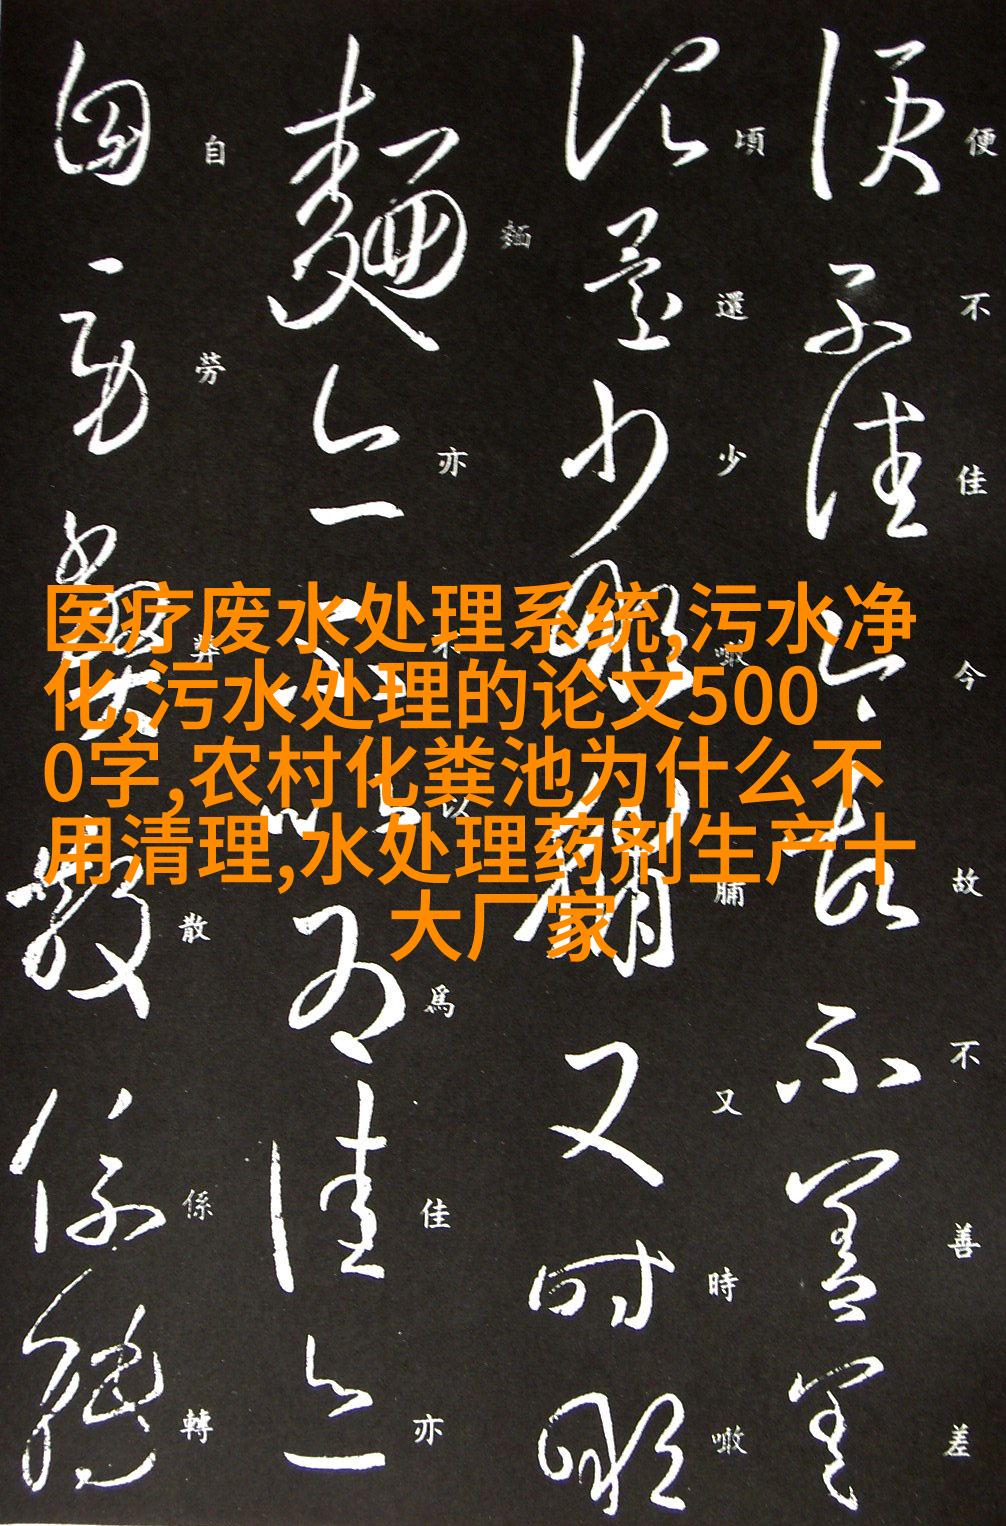 医疗废水处理系统,污水净
化,污水处理的论文500
0字,农村化粪池为什么不
用清理,水处理药剂生产十
大厂家
便不佳今故不善差
頃還少噉脯又時噉
麵亦不以為佳亦
自勞弊散係轉